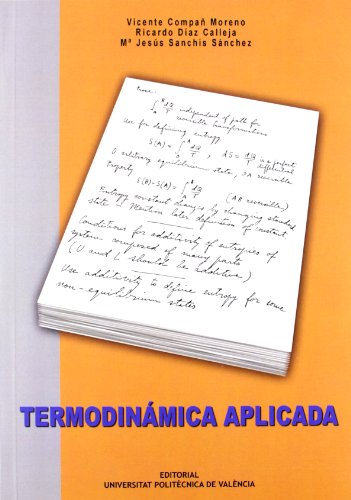 Vicente Compañ Moreno
Ricardo Díaz Calleja
Mª Jesús Sanchis Sánchez
Prove:
∫ dQ/T independent of path for
reversible transformations
Use for defining entropy
S(A) = ∫ dQ/T , dS = dQ/T is a perfect differential
O arbitrary equilibrium state, OA reversible
Property
S(B)-S(A) = ∫ dQ/T (AB reversible)
Entropy constant changes by changing standard
state - Mention later definition of constant
Conditions for additivity of entropies of
systems composed of many parts
(U and L should be additive)
Use additivity to define entropy for some
non-equilibrium states
TERMODINÁMICA APLICADA
EDITORIAL
UNIVERSITAT POLITÈCNICA DE VALÈNCIA